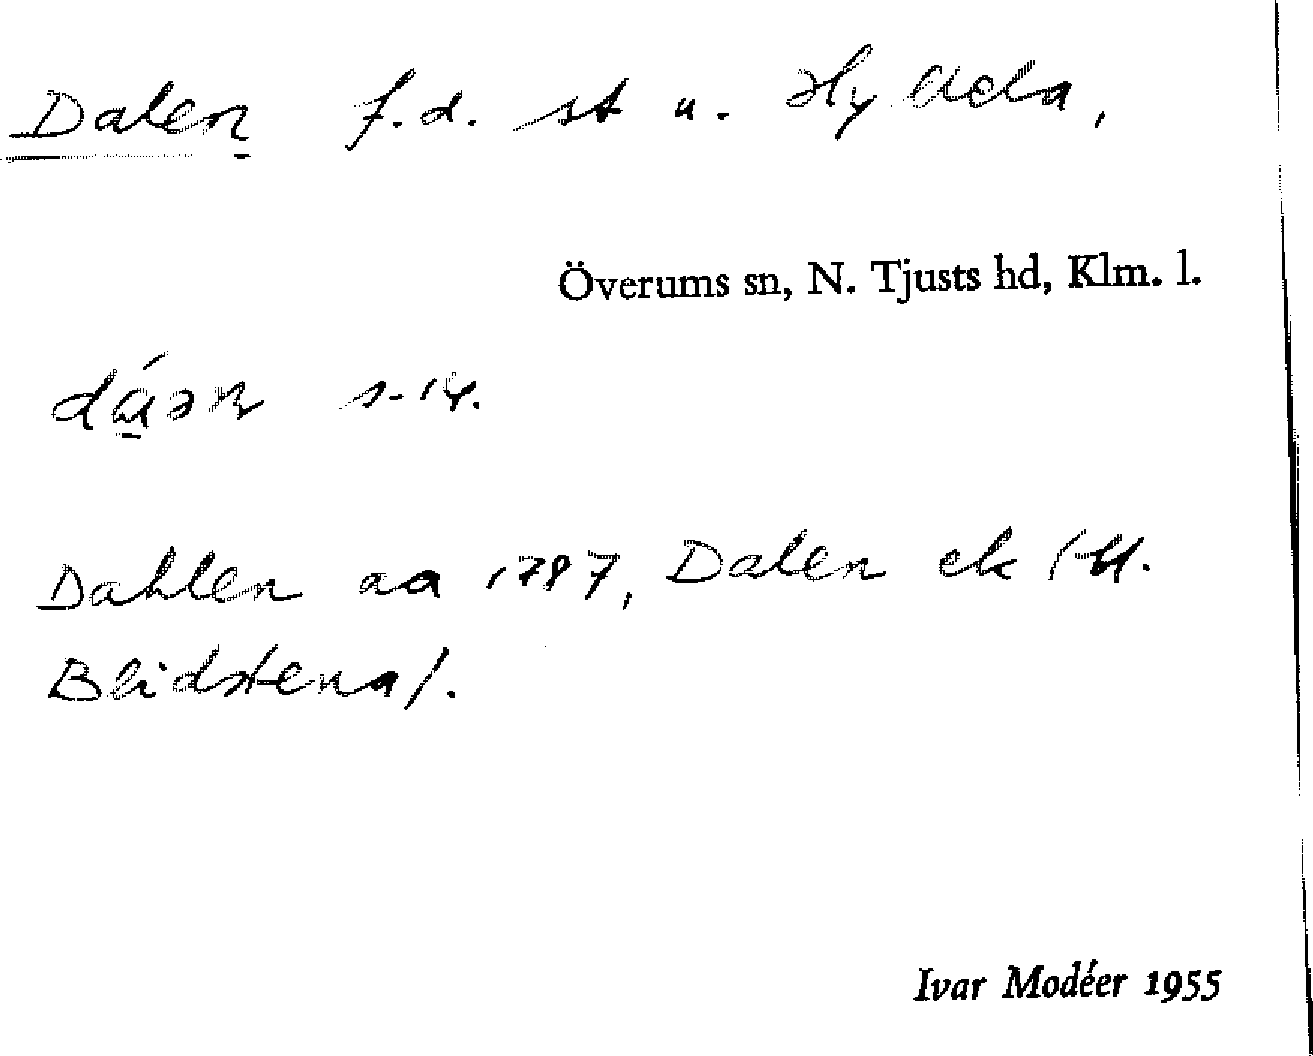 Dalen f.d. st u.
Överums sn, N. Tjusts hd, Klm. l.
Dahlen aa 1787, Dalen ek /
Blidstena/.
Ivar Modéer 1955